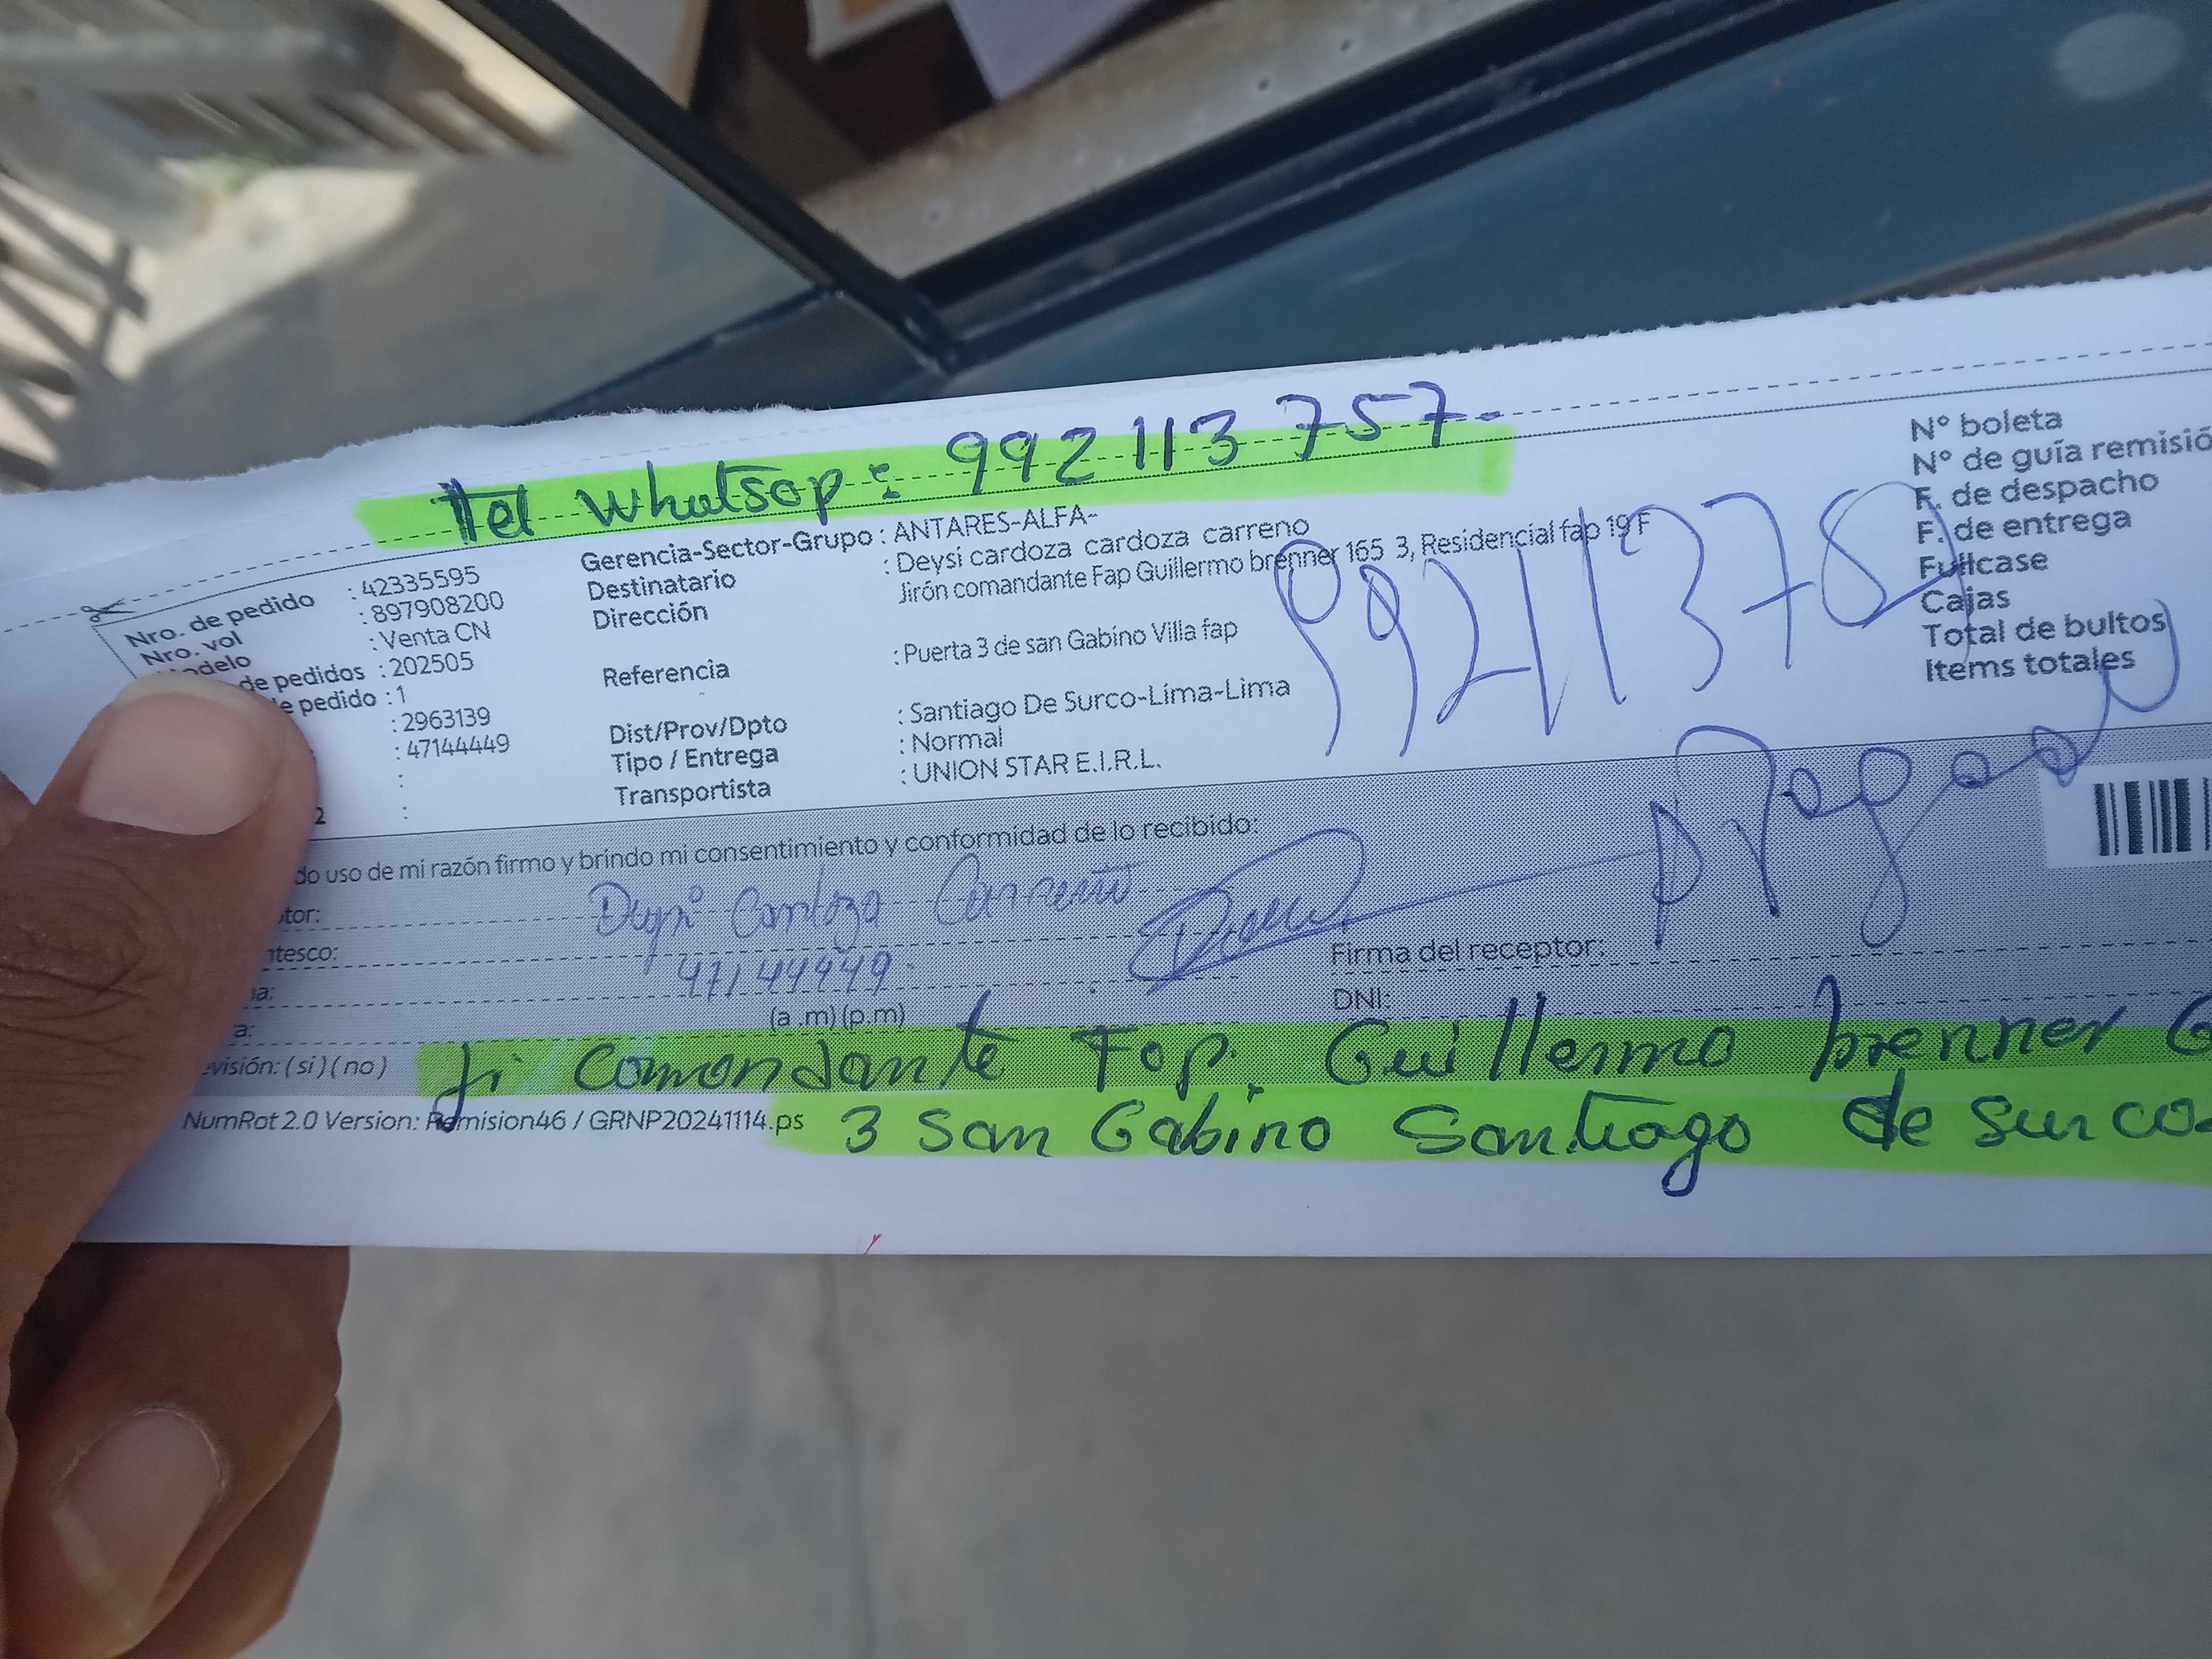 Tel Whatsop: 992 113 757-
Nro. de pedido : 42335595
Nro. vol : 897908200
Modelo : Venta CN
de pedidos : 202505
de pedido : 1
: 2963139
: 47144449
:
2 :
Gerencia-Sector-Grupo : ANTARES-ALFA-
Destinatario : Deysi cardoza cardoza carreno
Dirección Jirón comandante Fap Guillermo brenner 165 3, Residencial fap 19 F
Referencia : Puerta 3 de san Gabino Villa fap
Dist/Prov/Dpto : Santiago De Surco-Lima-Lima
Tipo / Entrega : Normal
Transportista : UNION STAR E.I.R.L.
N° boleta
N° de guía remisió
F. de despacho
F. de entrega
Fullcase
Cajas
Total de bultos
Items totales
do uso de mi razón firmo y brindo mi consentimiento y conformidad de lo recibido:
tor: Deysi Cardoza Carreño
ntesco: 47144449
Firma del receptor:
DNI:
a: (a .m) (p.m)
visión: (si) (no)
Ji Comandante Fap. Guillermo brenner
NumRot 2.0 Version: Remision46 / GRNP20241114.ps
3 San Gabino Santiago de Surco